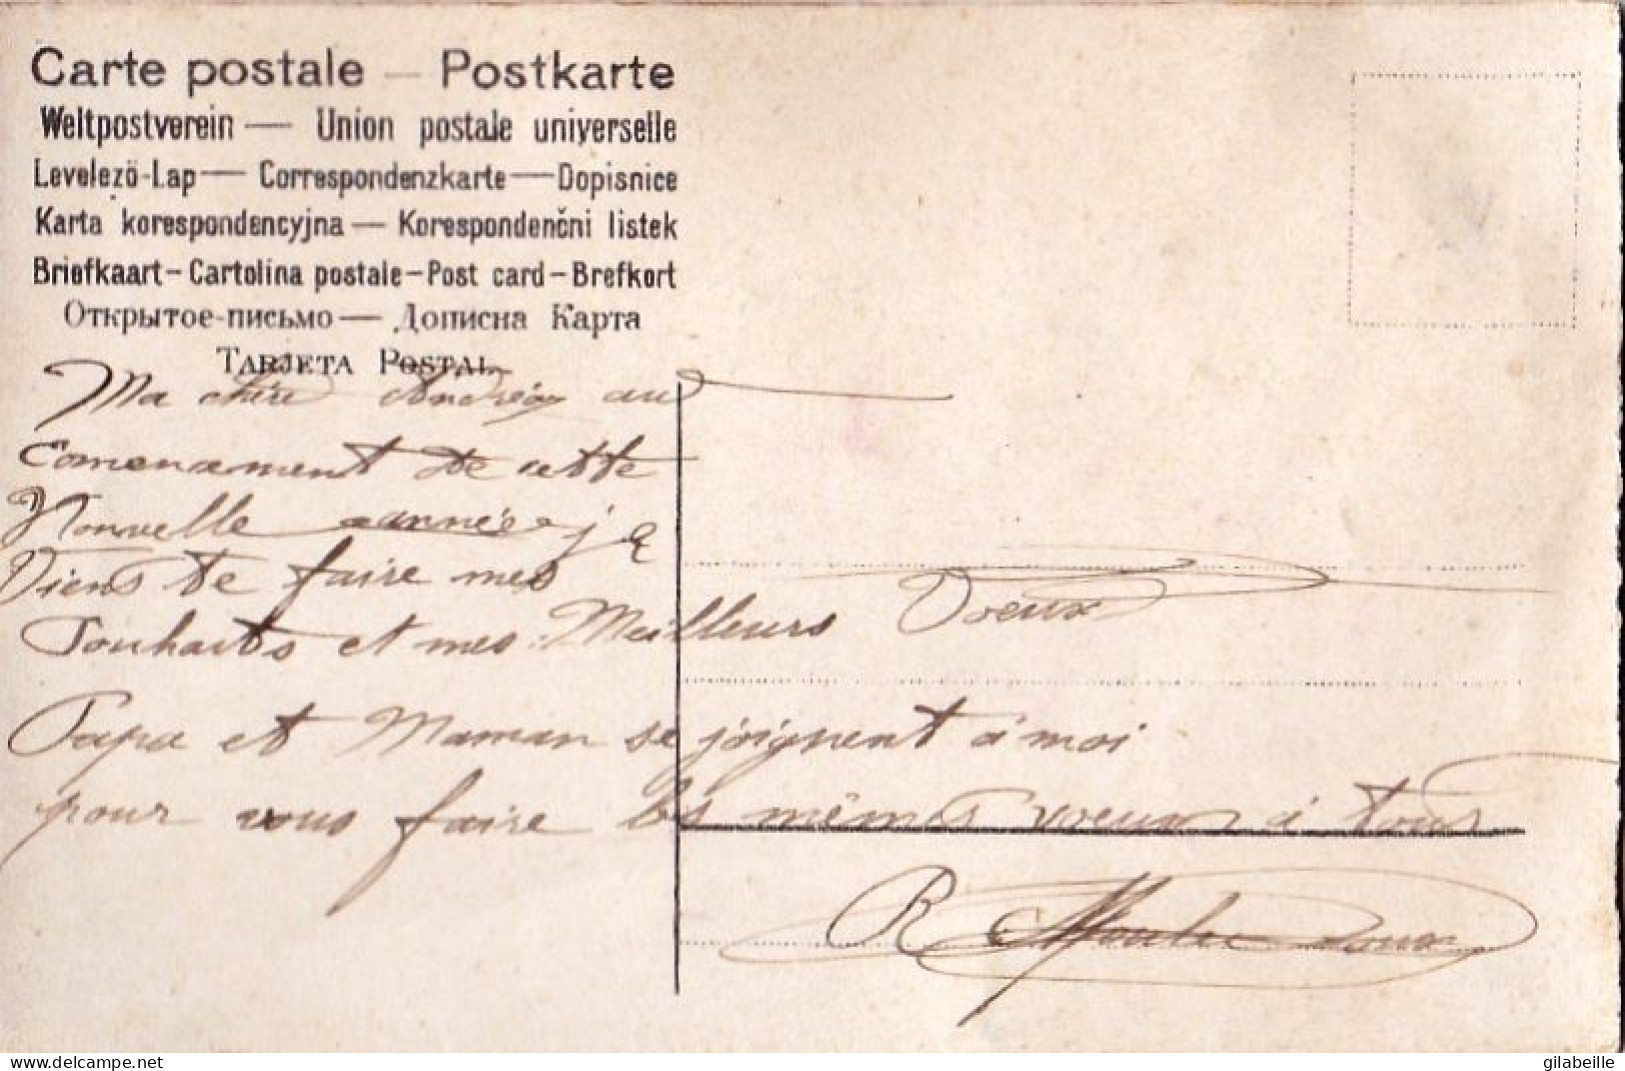 Carte postale — Postkarte
Weltpostverein — Union postale universelle
Levelezö-Lap — Correspondenzkarte — Dopisnice
Karta korespondencyjna — Korespondenčni listek
Briefkaart – Cartolina postale – Post card – Brefkort
Открытое-письмо — Дописна Карта
Tarjeta Postal
Ma chère au
Comencement de cette
Nouvelle année je
Viens te faire mes
Souhaits et mes Meilleurs Voeux
Papa et Maman se joignent à moi
pour vous faire les mêmes voeux à tous
R
delcampe.net
gilabeille